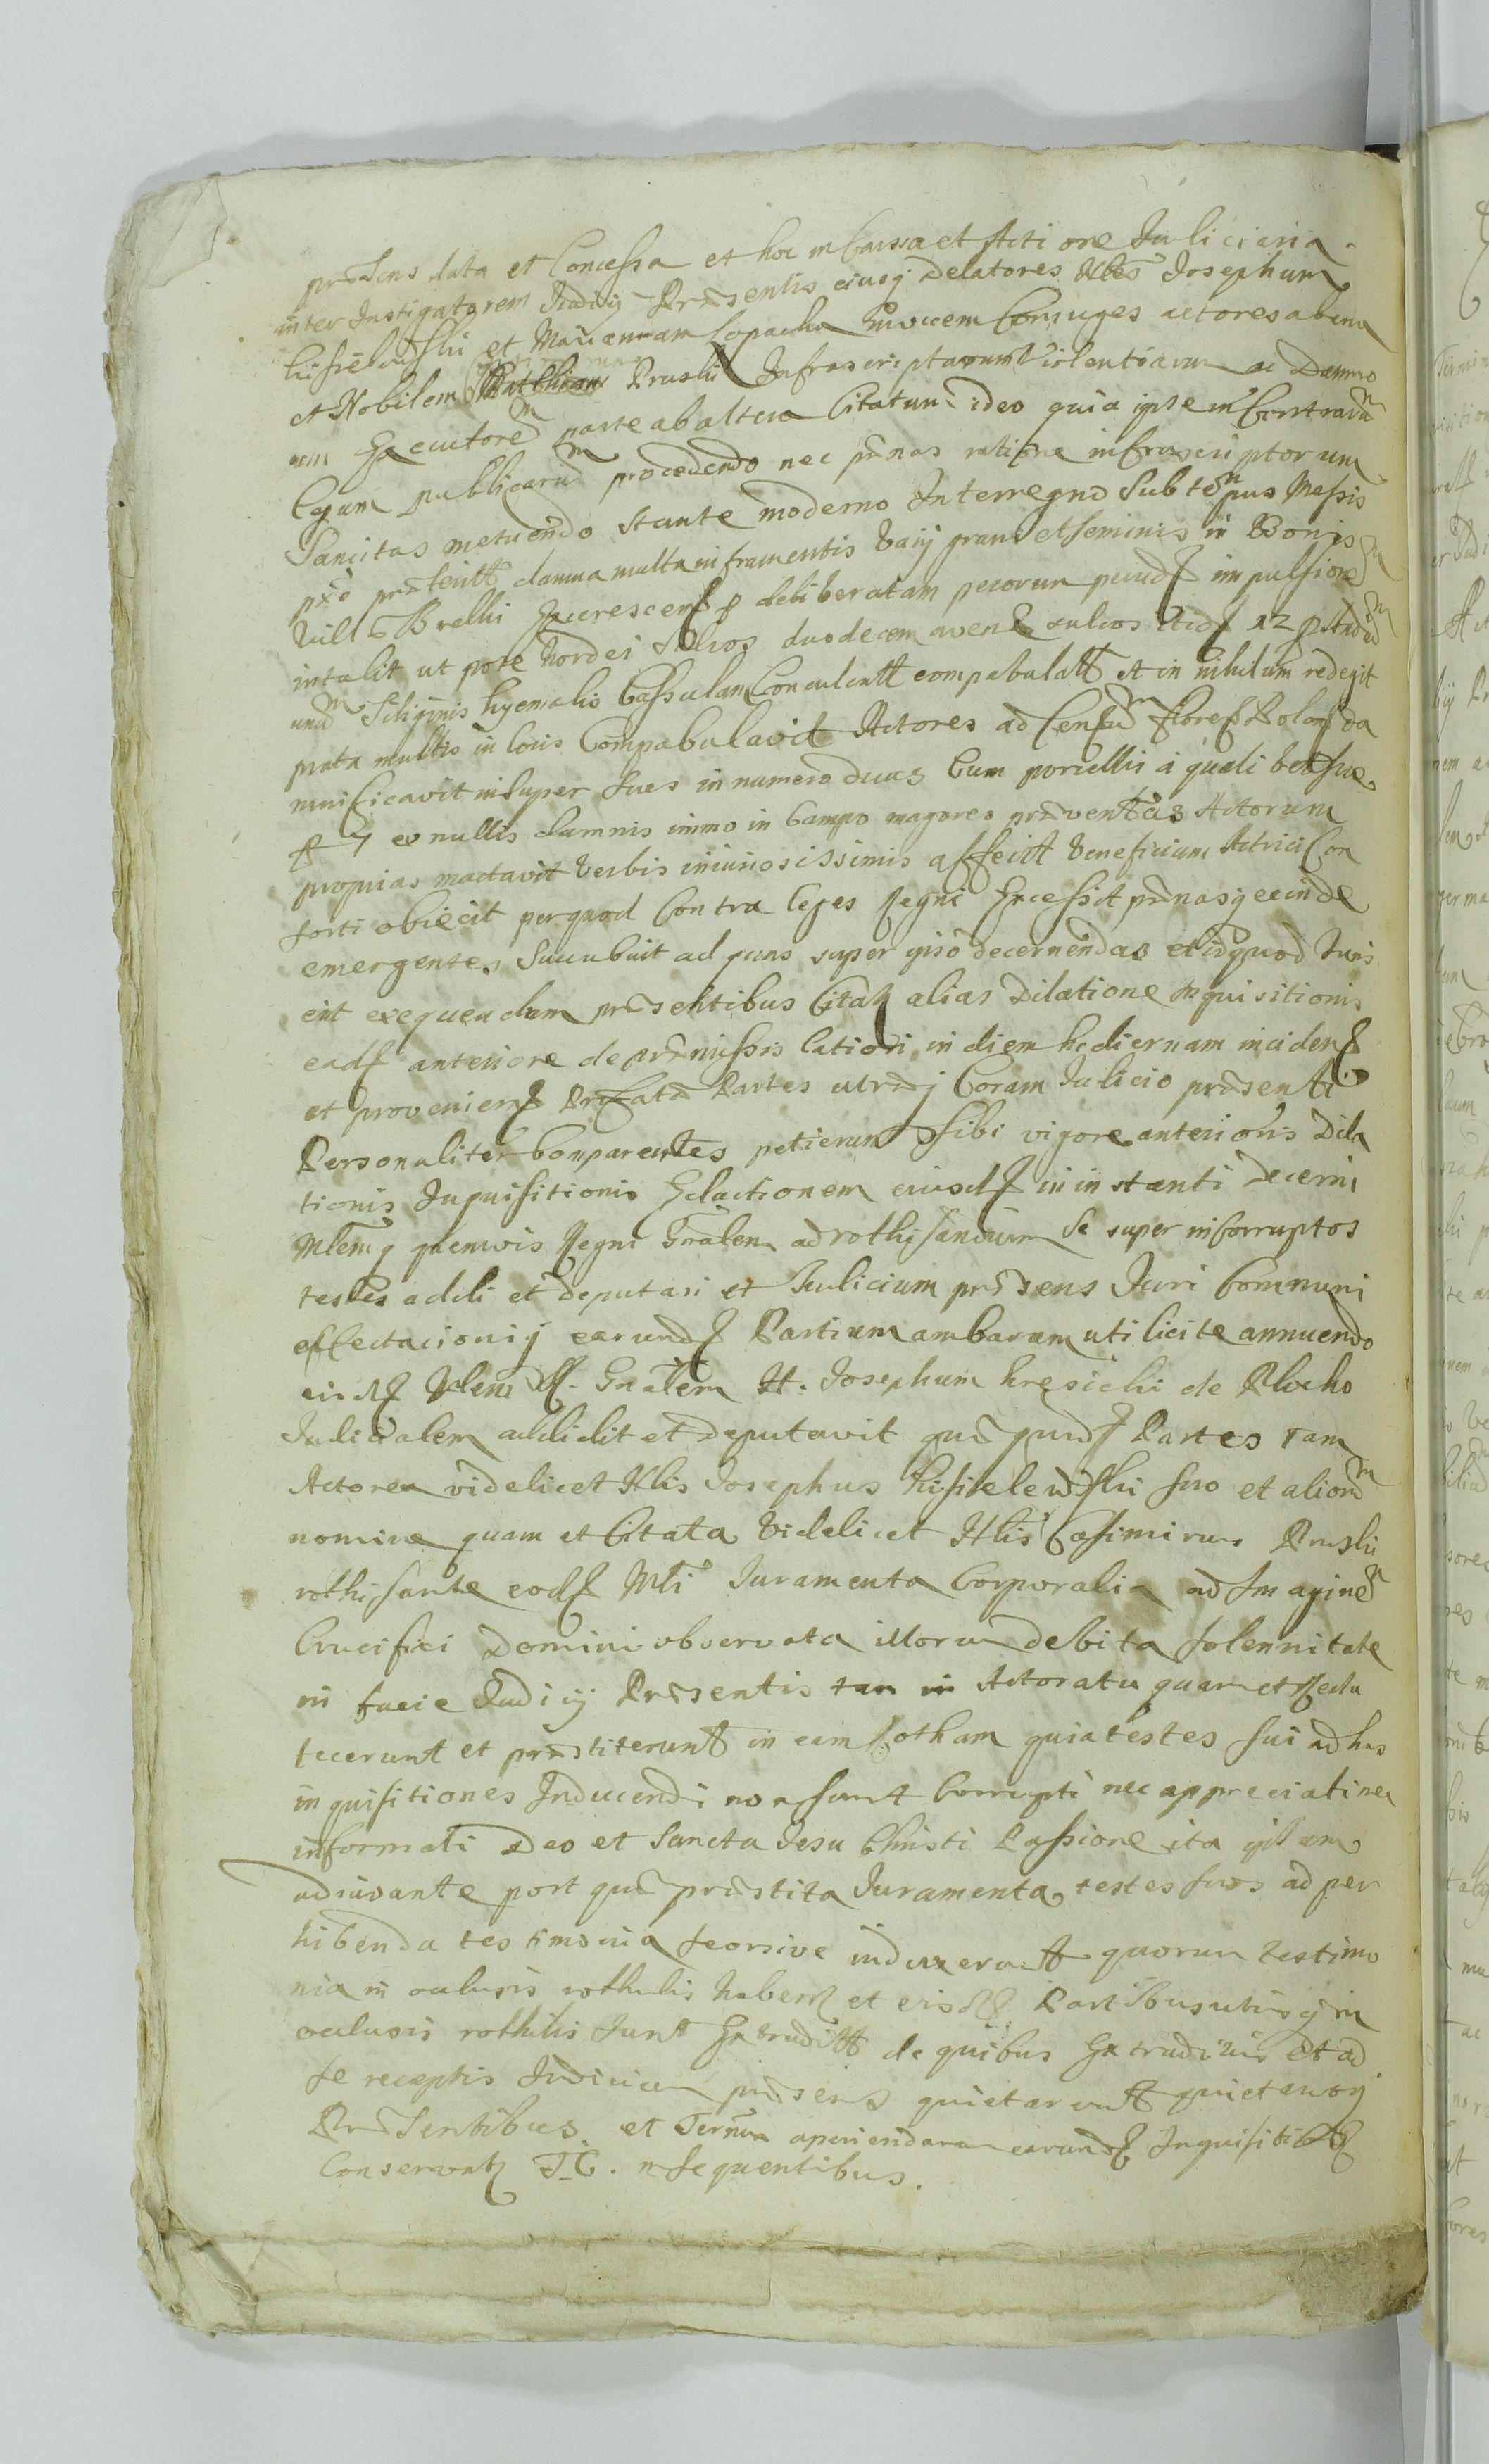 præsens data et Concessa et hoc in Causa et Actione Judiciaria
inter Instigatorem Judicij Præsentis eiusq Delatores Nbles Josephum
Kisielewski et Mariannam Łopacka Invicem Coniuges actores ab una
et Nobilem Pruski Infrascriptarum Violentiarum ac Damno
rum Executorem parte ab altera Citatum ideo quia ipse in Contrarium
Legum publicarum procedendo nec pœnas ratione infrascriptorum
Sancitas metuendo Stante moderno Interregno Sub tempus Messis
damna multa in frumentis varij grani et seminis in Bonis
Villæ Brelki deliberatam pecorum pecud impulsionem
intulit ut pote hordei Sulcos duodecem avenæ sulcos itid 12
unam Siliginis hyemalis Cassulam Conculcatt compabulatt et in nihilum redegit
prata multis in locis Compabulavit Actores ad Censum flores Polon da
mnificavit insuper Sues in numero duas Cum porcellis
ex nullis damnis immo in Campo maiores præventas Actorum
proprias mactavit verbis iniuriosissimis affecitt Veneficium Actrici Con
sorti obiecit per quod Contra Leges Regni Excessit pœnasq exinde
emergentes Succubuit ad quas super ipso decernendas et id quod Juris
erit exequendum præsentibus Citatq alias Dilatione Inquisitionis
ead anteriore de præmissis latiori in diem hodiernam inciden
et provenien Præfatæ Partes utræq Coram Judicio præsenti
Personaliter Comparentes petierunt sibi vigore anterioris Dila
tionis Inquisitionis Eductionem eiusd in instanti Decerni
Mlemq quemvis Regni Gnalem ad rothisandum Se super incorruptos
testes addi et deputari et Judicium præsens Juri Communi
effectacioniq earund Partium ambarum uti licite annuendo
eisd Mlem R. Gnalem H. Josephum Kręsicki de Płocko
Judicialem addidit et deputavit Partes tam
Actorea videlicet Nblis Josephus Kisielewski suo et aliorum
nomine quam et Citata Videlicet Nblis Casimirus Pruski
rothisante eod Mli Juramenta Corporalia ad Imaginem
Crucifixi Domini observata illorum debita solennitate
in facie Judicij Præsentis tam in Actoratu quam et Reatu
fecerunt et præstiterunt in eam rotham quia testes sui ad has
inquisitiones Inducendi non sunt Corrupti nec appreciati nec
informati Deo et Sancta Jesu Christi Passione ita ipsam
adiuvante post quæ præstita Juramenta testes suos ad per
hibenda testimonia seorsive induxerunt quorum testimo
nia in oclusis rothulis haben et eisd Partibus utrisq in
oclusis rothulis sunt Extraditt de quibus Extraditis et ad
se receptis Judicium præsens quietarunt quietantq
Præsentibus et Termin aperiendarum earund Inquisit
Conservatq T.C. in Sequentibus.